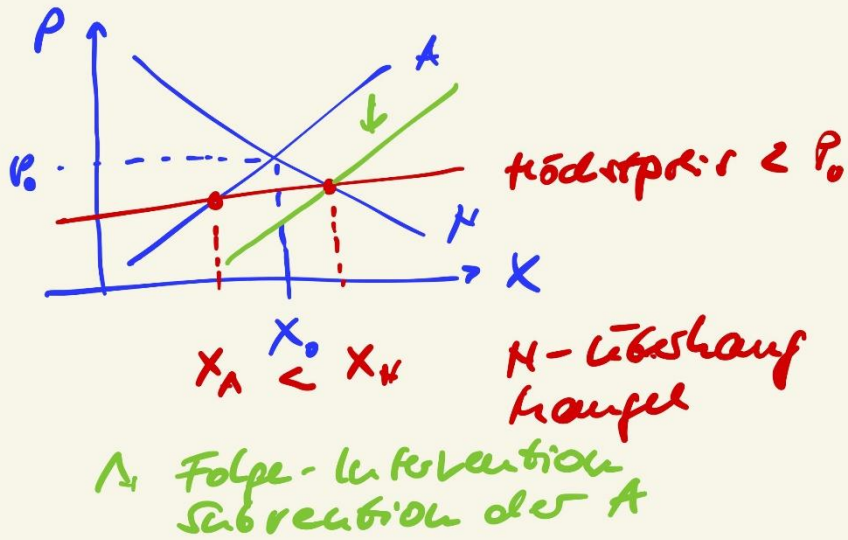 P
A
P₀
Höchstpreis < P₀
N
X
X₀
X_A < X_N
N-Überhang
Mangel
1, Folge-Intervention
Subvention der A